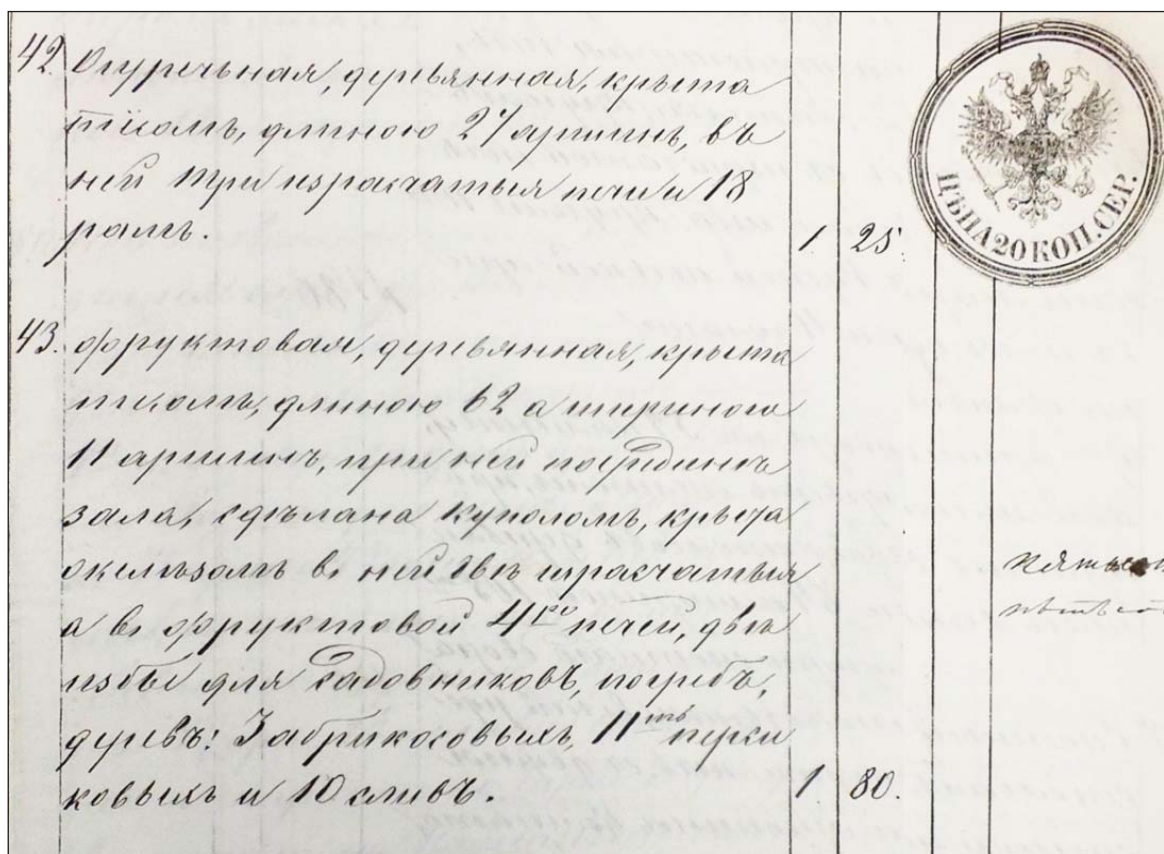 42. Огуречьная, деревянная, крыта
тёсомъ, длиною 27 аршинъ, въ
ней три израсчатыя печи и 18
рамъ. 1 25.
ЦѢНА 20 КОП. СЕР.
43. фруктовая, деревянная, крыта
тесомъ, длиною 62 а шириною
11 аршинъ, при ней посрединѣ
зала, сдѣлана куполомъ, крыта
желѣзомъ въ ней двѣ израсчатыя
а въ фруктовой 4ре печей, двѣ
избы для садовниковъ, погребъ,
деревъ: 3 абрикосовыхъ, 11ть перси
ковыхъ и 10 сливъ. 1 80.